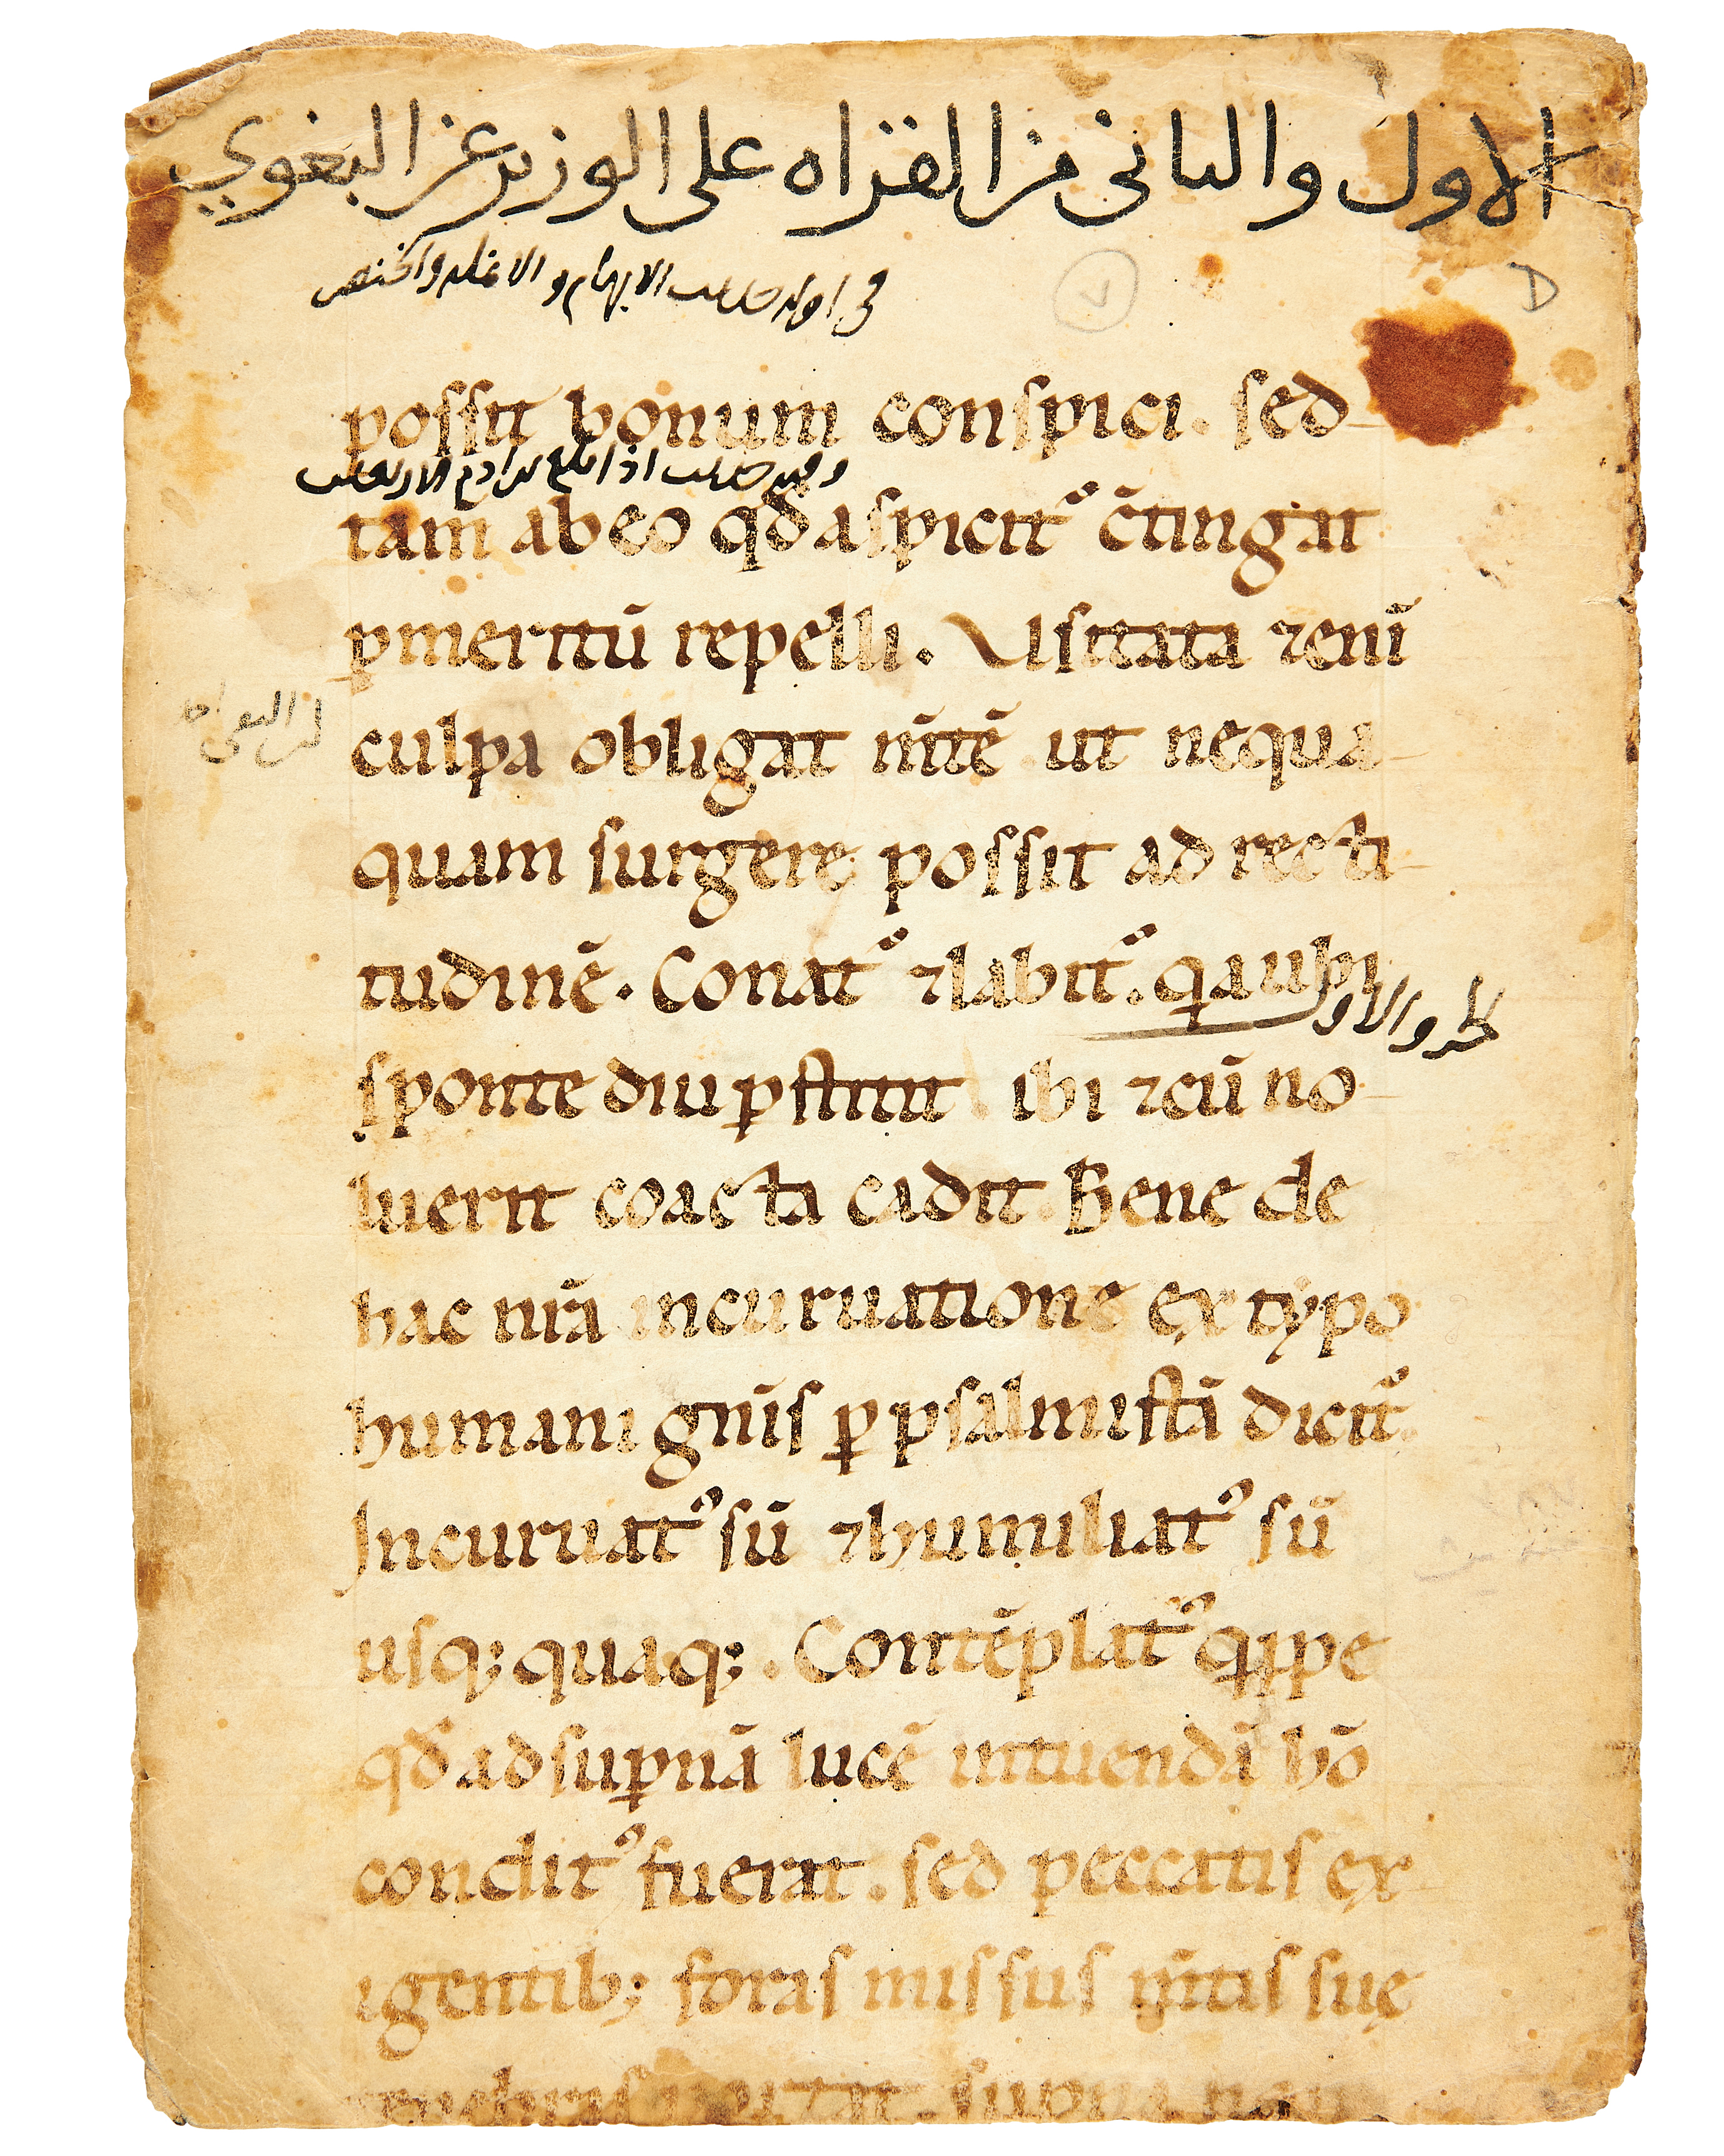 الاول والثاني من القراه على الوزير عن البغوي
في اوله حديث الابهام و
possit bonum conspici. sed
وفيه حديث اذا
tam ab eo qđ aspicit᷑ c̄tingat
p meritū repelli. Usitata ⁊eni̅
culpa obligat m̄tē ut nequa
quam surgere possit ad recti
tudinē. Conat᷑ ⁊labit᷑. qa ubi
والاو
sponte diu ꝑstitit. ibi ⁊cū no
luerit coacta cadit. Bene de
hac nr̄a incuruatione ex typo
humani gn̄is ꝑ psalmistā dicit᷑
Incuruatꝰ sū ⁊humiliatꝰ sū
usq; quaq;. Contēplatꝰ qippe
qđ ad suꝑnā lucē intuendā hō
conditꝰ fuerat. sed peccatis ex
igentib; foras missus m̄tis suę
D